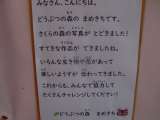 みなさん、こんにちは。
どうぶつの森の まめきちです。
さくらの森の写真が とどきました!
すてきな作品が できましたね。
いろんな
楽しいようすが 伝わってきました。
これからも、みんなで協力して
たくさんチャレンジしてください!
どうぶつの森 まめきち